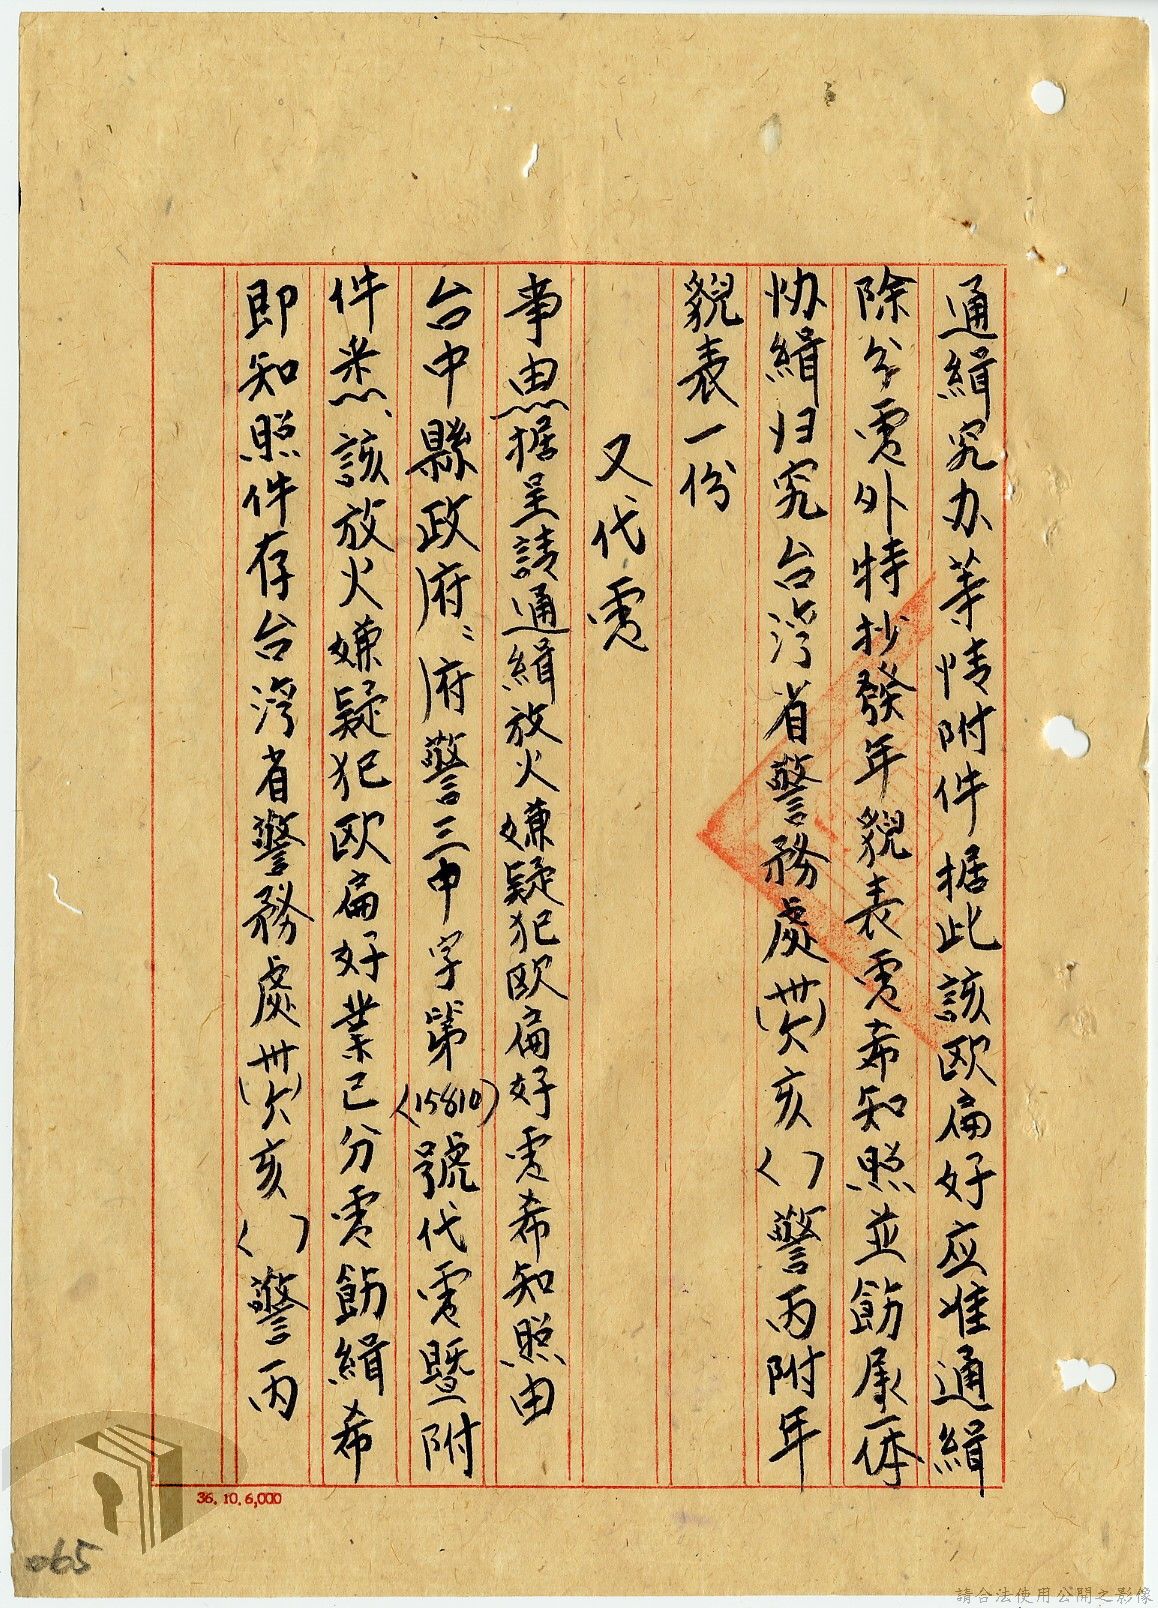 通緝究办等情附件据此該欧扁好应准通緝
除分電外特抄發年貌表電希知照並飭屬一体
协緝归究台湾省警務處卅(六)亥( )警丙附年
貌表一份
又代電
事由:為据呈請通緝放火嫌疑犯欧扁好電希知照由
台中縣政府:府警三申字第(15810)號代電暨附
件悉、該放火嫌疑犯欧扁好業已分電飭緝希
即知照件存台湾省警務處卅(六)亥( )警丙
36.10.6,000
065
請合法使用公開之影像